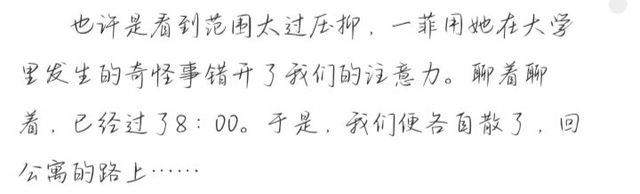 也许是看到范围太过压抑，一菲用她在大学
里发生的奇怪事错开了我们的注意力。聊着聊
着，已经过了8：00。于是，我们便各自散了，回
公寓的路上……